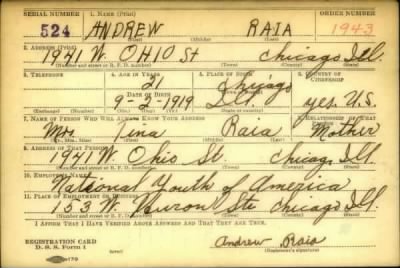 SERIAL NUMBER 1. NAME (Print) ORDER NUMBER
524 ANDREW RAIA 1943
(First) (Middle) (Last)
2. ADDRESS (Print)
1941 W. OHIO St Chicago Ill.
(Number and street or R. F. D. number) (Town) (County) (State)
3. TELEPHONE 4. AGE IN YEARS 5. PLACE OF BIRTH 6. COUNTRY OF CITIZENSHIP
21 Chicago
DATE OF BIRTH
9-2-1919 Ill. yes. U.S.
(Exchange) (Number) (Mo.) (Day) (Yr.) (State or country)
7. NAME OF PERSON WHO WILL ALWAYS KNOW YOUR ADDRESS 8. RELATIONSHIP OF THAT PERSON
Mrs. Tina Raia Mother
(Mr., Mrs., Miss) (First) (Middle) (Last)
9. ADDRESS OF THAT PERSON
1941 W. Ohio St. Chicago Ill.
(Number and street or R. F. D. number) (Town) (County) (State)
10. EMPLOYER'S NAME
National Youth of America
11. PLACE OF EMPLOYMENT OR BUSINESS
153 W. Huron Ste Chicago Ill.
(Number and street or R. F. D. number) (Town) (County) (State)
I AFFIRM THAT I HAVE VERIFIED ABOVE ANSWERS AND THAT THEY ARE TRUE.
REGISTRATION CARD
D. S. S. Form 1 Andrew Raia
(Registrant's signature)